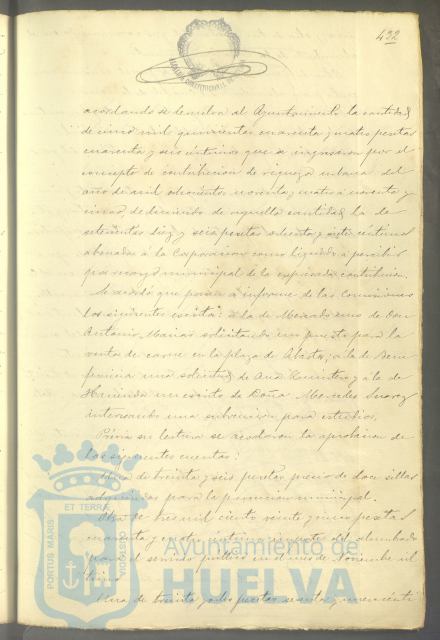 422
acordando se devuelva al Ayuntamiento la cantidad
de cinco mil quinientas cuarenta y cuatro pesetas
cuarenta y seis céntimos que se ingresaron por el
concepto de contribucion de riqueza urbana del
año de mil ochocientos noventa y cuatro a noventa y
cinco, deduciendo de aquella cantidad la de
setecientas diez y seis pesetas ochenta y siete céntimos
abonadas á la Corporacion como líquido á percibir
por recargo municipal de la espresada contribucion.
Se acordó que pasen á informe de las Comisiones
los siguientes escritos: á la de Mercado uno de Don
Antonio Macias solicitando un puesto para la
venta de carne en la plaza de Abasto; a la de Bene-
ficencia una solicitud de Ana Quintero y á la de
Hacienda un escrito de Doña Mercedes Suarez
interesando una subvencion para estudios.
Prévia su lectura se acordaron la aprobacion de
los siguientes cuentas:
Una de treinta y seis pesetas precio de doce sillas
adquiridas para la prevencion municipal.
Otra de tres mil ciento veinte y cinco pesetas
cuarenta y céntimos importe del alumbrado
para el servicio público en el mes de Noviembre úl-
timo
Otra de treinta y ocho pesetas sesenta y
PORTUS MARIS
ET TERRAE
CUSTODIA
Ayuntamiento de
HUELVA